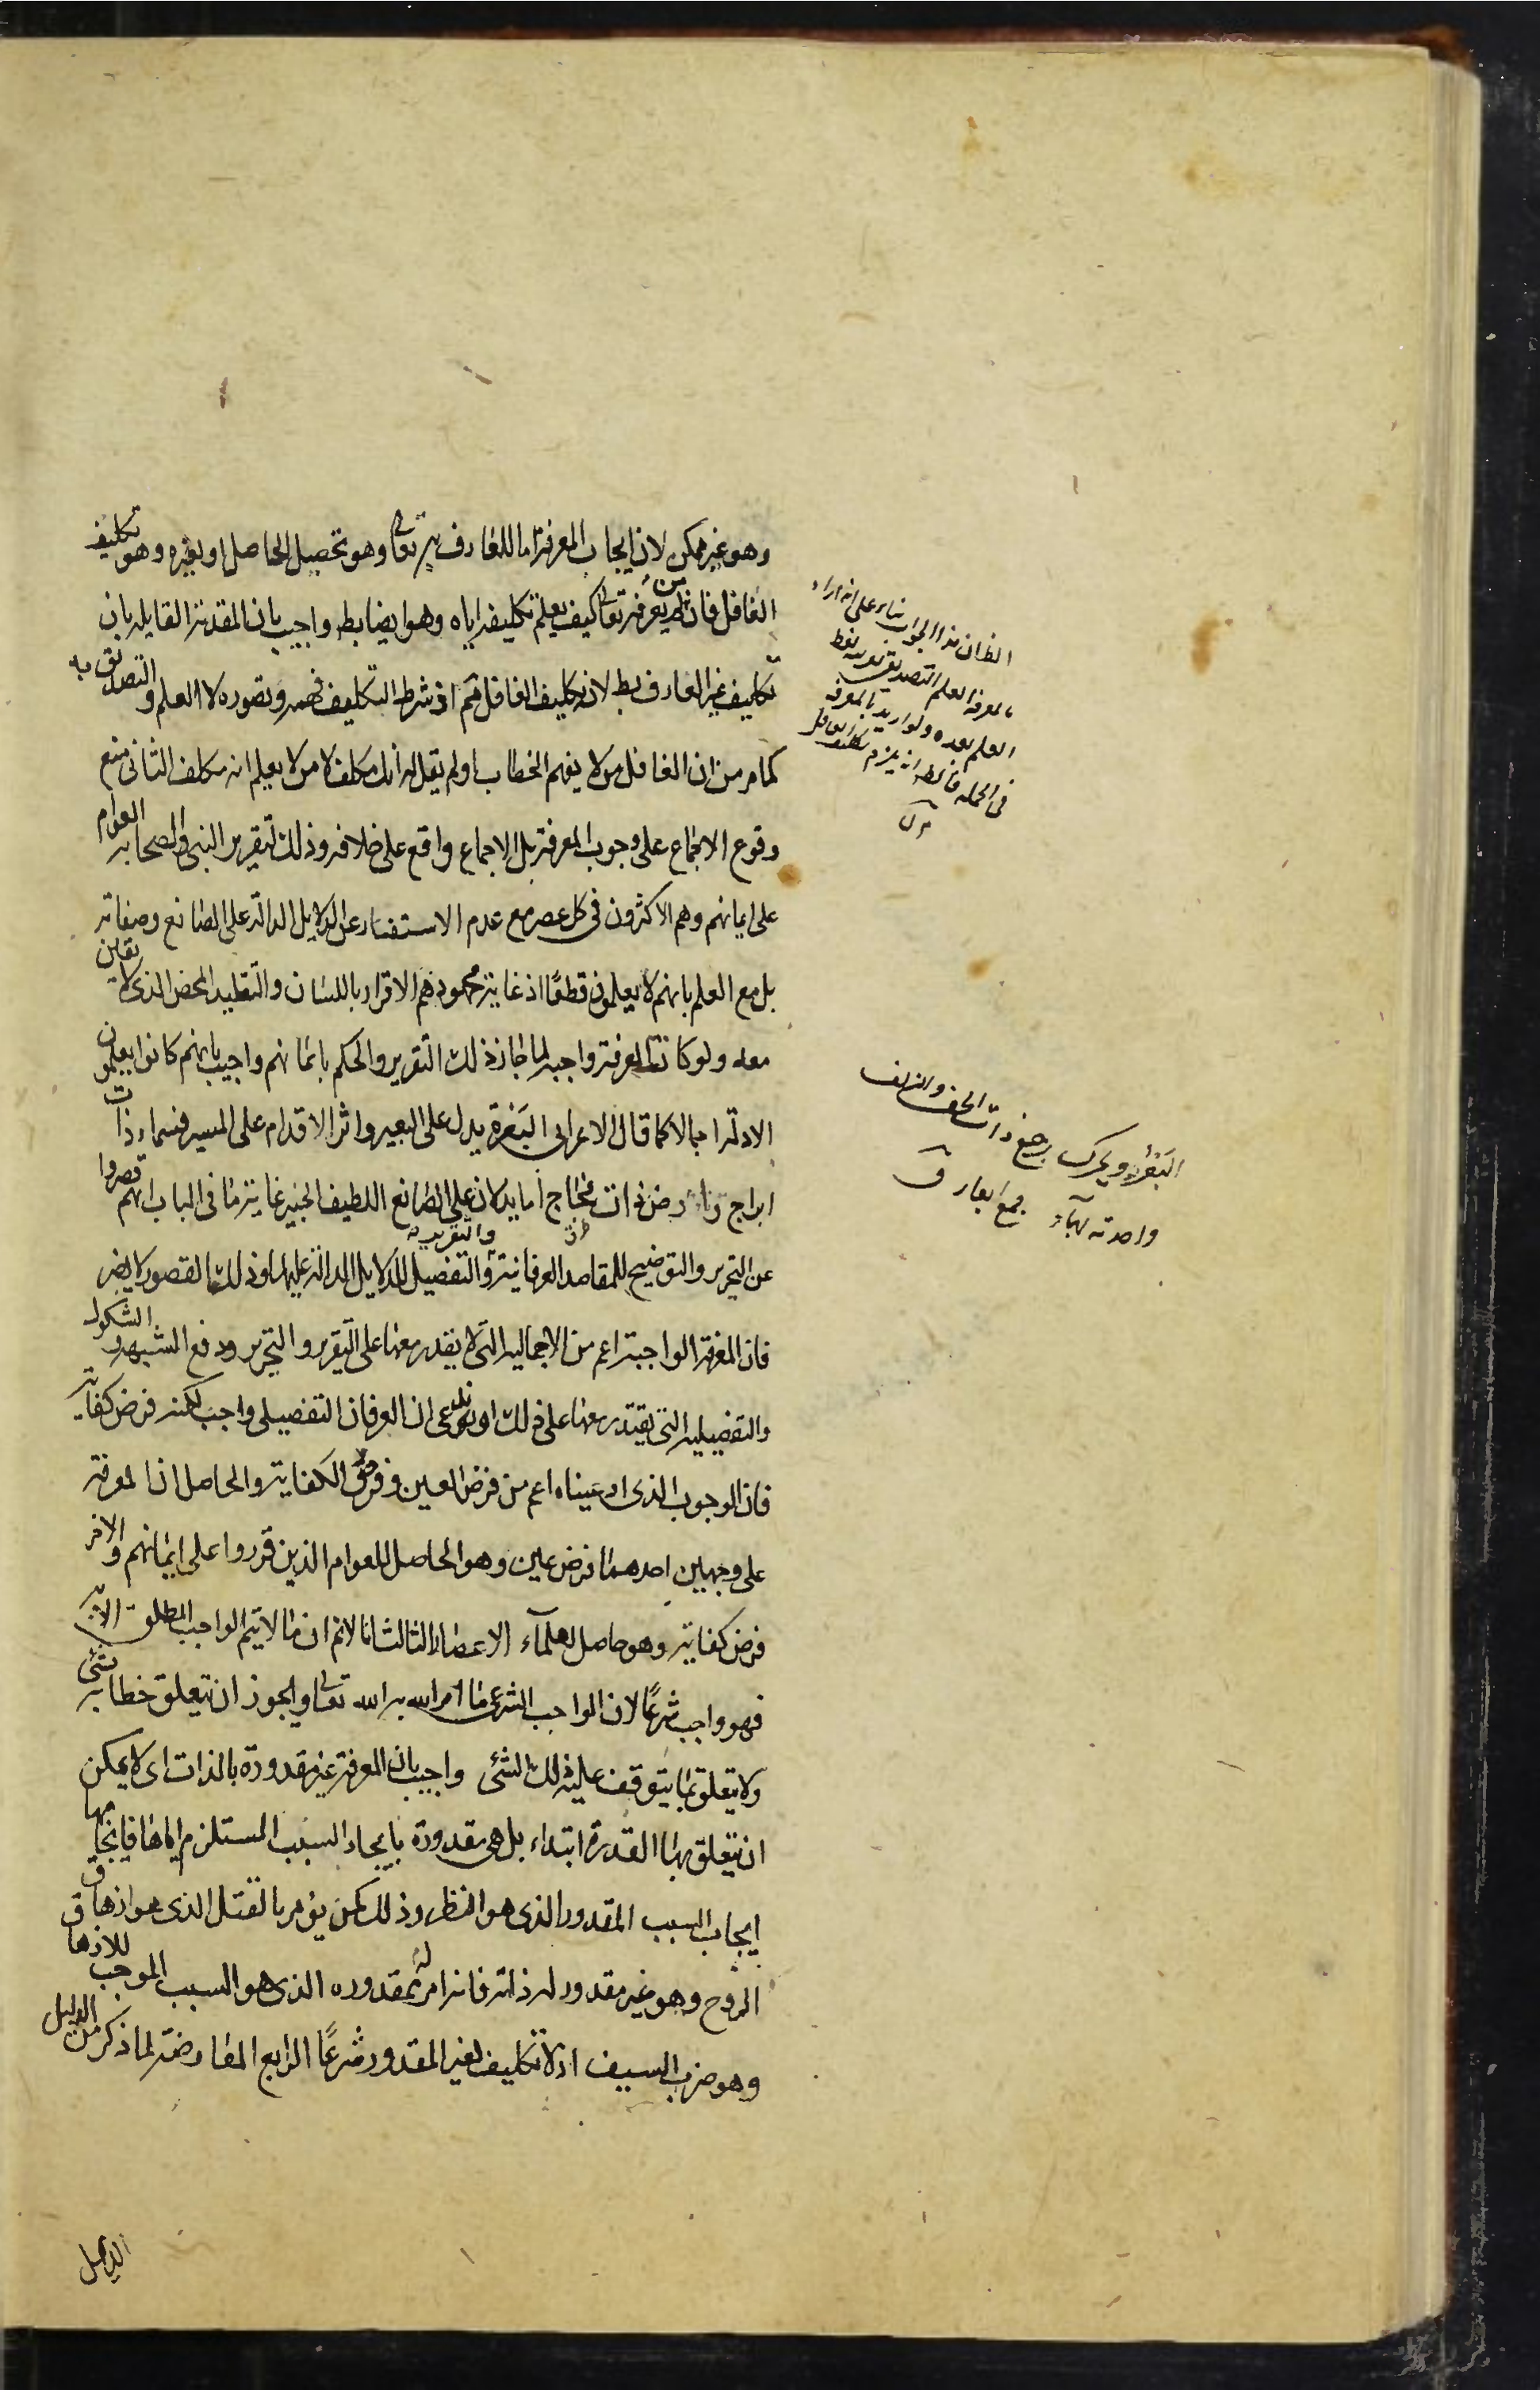 وهو غير ممكن لان ايجاب المعرفة اما للعارف به تعالى وهو تحصيل الحاصل او لغيره وهو تكليف
الغافل فان من لم يعرفه تعالى كيف يعلم تكليفه اياه وهو ايضا بط واجيب بان المقدمة القايلة بان
تكليف غير العارف بط لانه تكليف الغافل مم اذ شرط التكليف فهمه وتصوره لا العلم والتصديق به
كما مر من ان الغافل من لا يفهم الخطاب او لم يقل له انك مكلف لا من لا يعلم انه مكلف الثانى منع
وقوع الاجماع على وجوب المعرفة بل الاجماع واقع على خلافه وذلك لتقرير النبى والصحابه العوام
على ايمانهم وهم الاكثرون فى كل عصر مع عدم الاستفسار عن الدلايل الدالة على الصانع وصفاته
بل مع العلم بانهم لا يعلمون قطعًا اذ غاية مجهودهم الاقرار باللسان والتقليد المحض الذى لا يقين
معه ولو كانت المعرفة واجبة لما جاز ذلك التقرير والحكم بايمانهم واجيب بانهم كانوا يعلمون
الادلة اجمالا كما قال الاعرابى البعرة يدل على البعير واثر الاقدام على المسير فسماء ذات
ابراج وارض ذات فجاج أما يدلان على الصانع اللطيف الخبير غاية ما فى الباب انهم قصروا
عن التحرير والتوضيح للمقاصد العرفانية والتقرير والتفصيل للدلايل الدالة عليها وذلك القصور لا يضر
فان المعرفة الواجبة اعم من الاجمالية التى لا يقدر معها على التقرير والتحرير ودفع الشبهة والشكوك
والتفصيلية التى يقتدر معها على ذلك او ندعى ان العرفان التفصيلى واجب لكنه فرض كفاية
فان الوجوب الذى ادعيناه اعم من فرض العين وفرض الكفاية والحاصل ان المعرفة
على وجهين احدهما فرض عين وهو الحاصل للعوام الذين قرروا على ايمانهم والاخر
فرض كفاية وهو حاصل لعلمآء الاعصار الثالث انا لا نم ان ما لا يتم الواجب المطلق الا به
فهو واجب شرعًا لان الواجب الشرعى ما امر الله به الله تعالى ويجوز ان تعلق خطابه بشئ
ولا يتعلق بما يتوقف عليه ذلك الشئ واجيب بان المعرفة غير مقدورة بالذات اى لا يمكن
ان يتعلق بها القدرة ابتداء بل هى مقدورة بايجاد السبب المستلزم اياها فايجابها
ايجاب السبب المقدور الذى هو النظر وذلك كمن يؤمر بالقتل الذى هو ازهاق
الروح وهو غير مقدور له لذاته فانه امر له بمقدوره الذى هو السبب الموجب للازهاق
وهو ضرب السيف اذ لا تكليف لغير المقدور شرعًا الرابع المعارضة لما ذكر من الدليل
الدليل
الظ ان هذا الجواب بناء على انه اراد
بالمعرفة العلم التصديق
العلم بعده ولو اريد بالمعرفة
فى الجملة
البعرة ويحرك رجيع ذات الخف والظلف
واحدته بهآء جمع ابعار ق